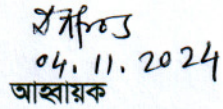 04.11.2024
আহ্বায়ক